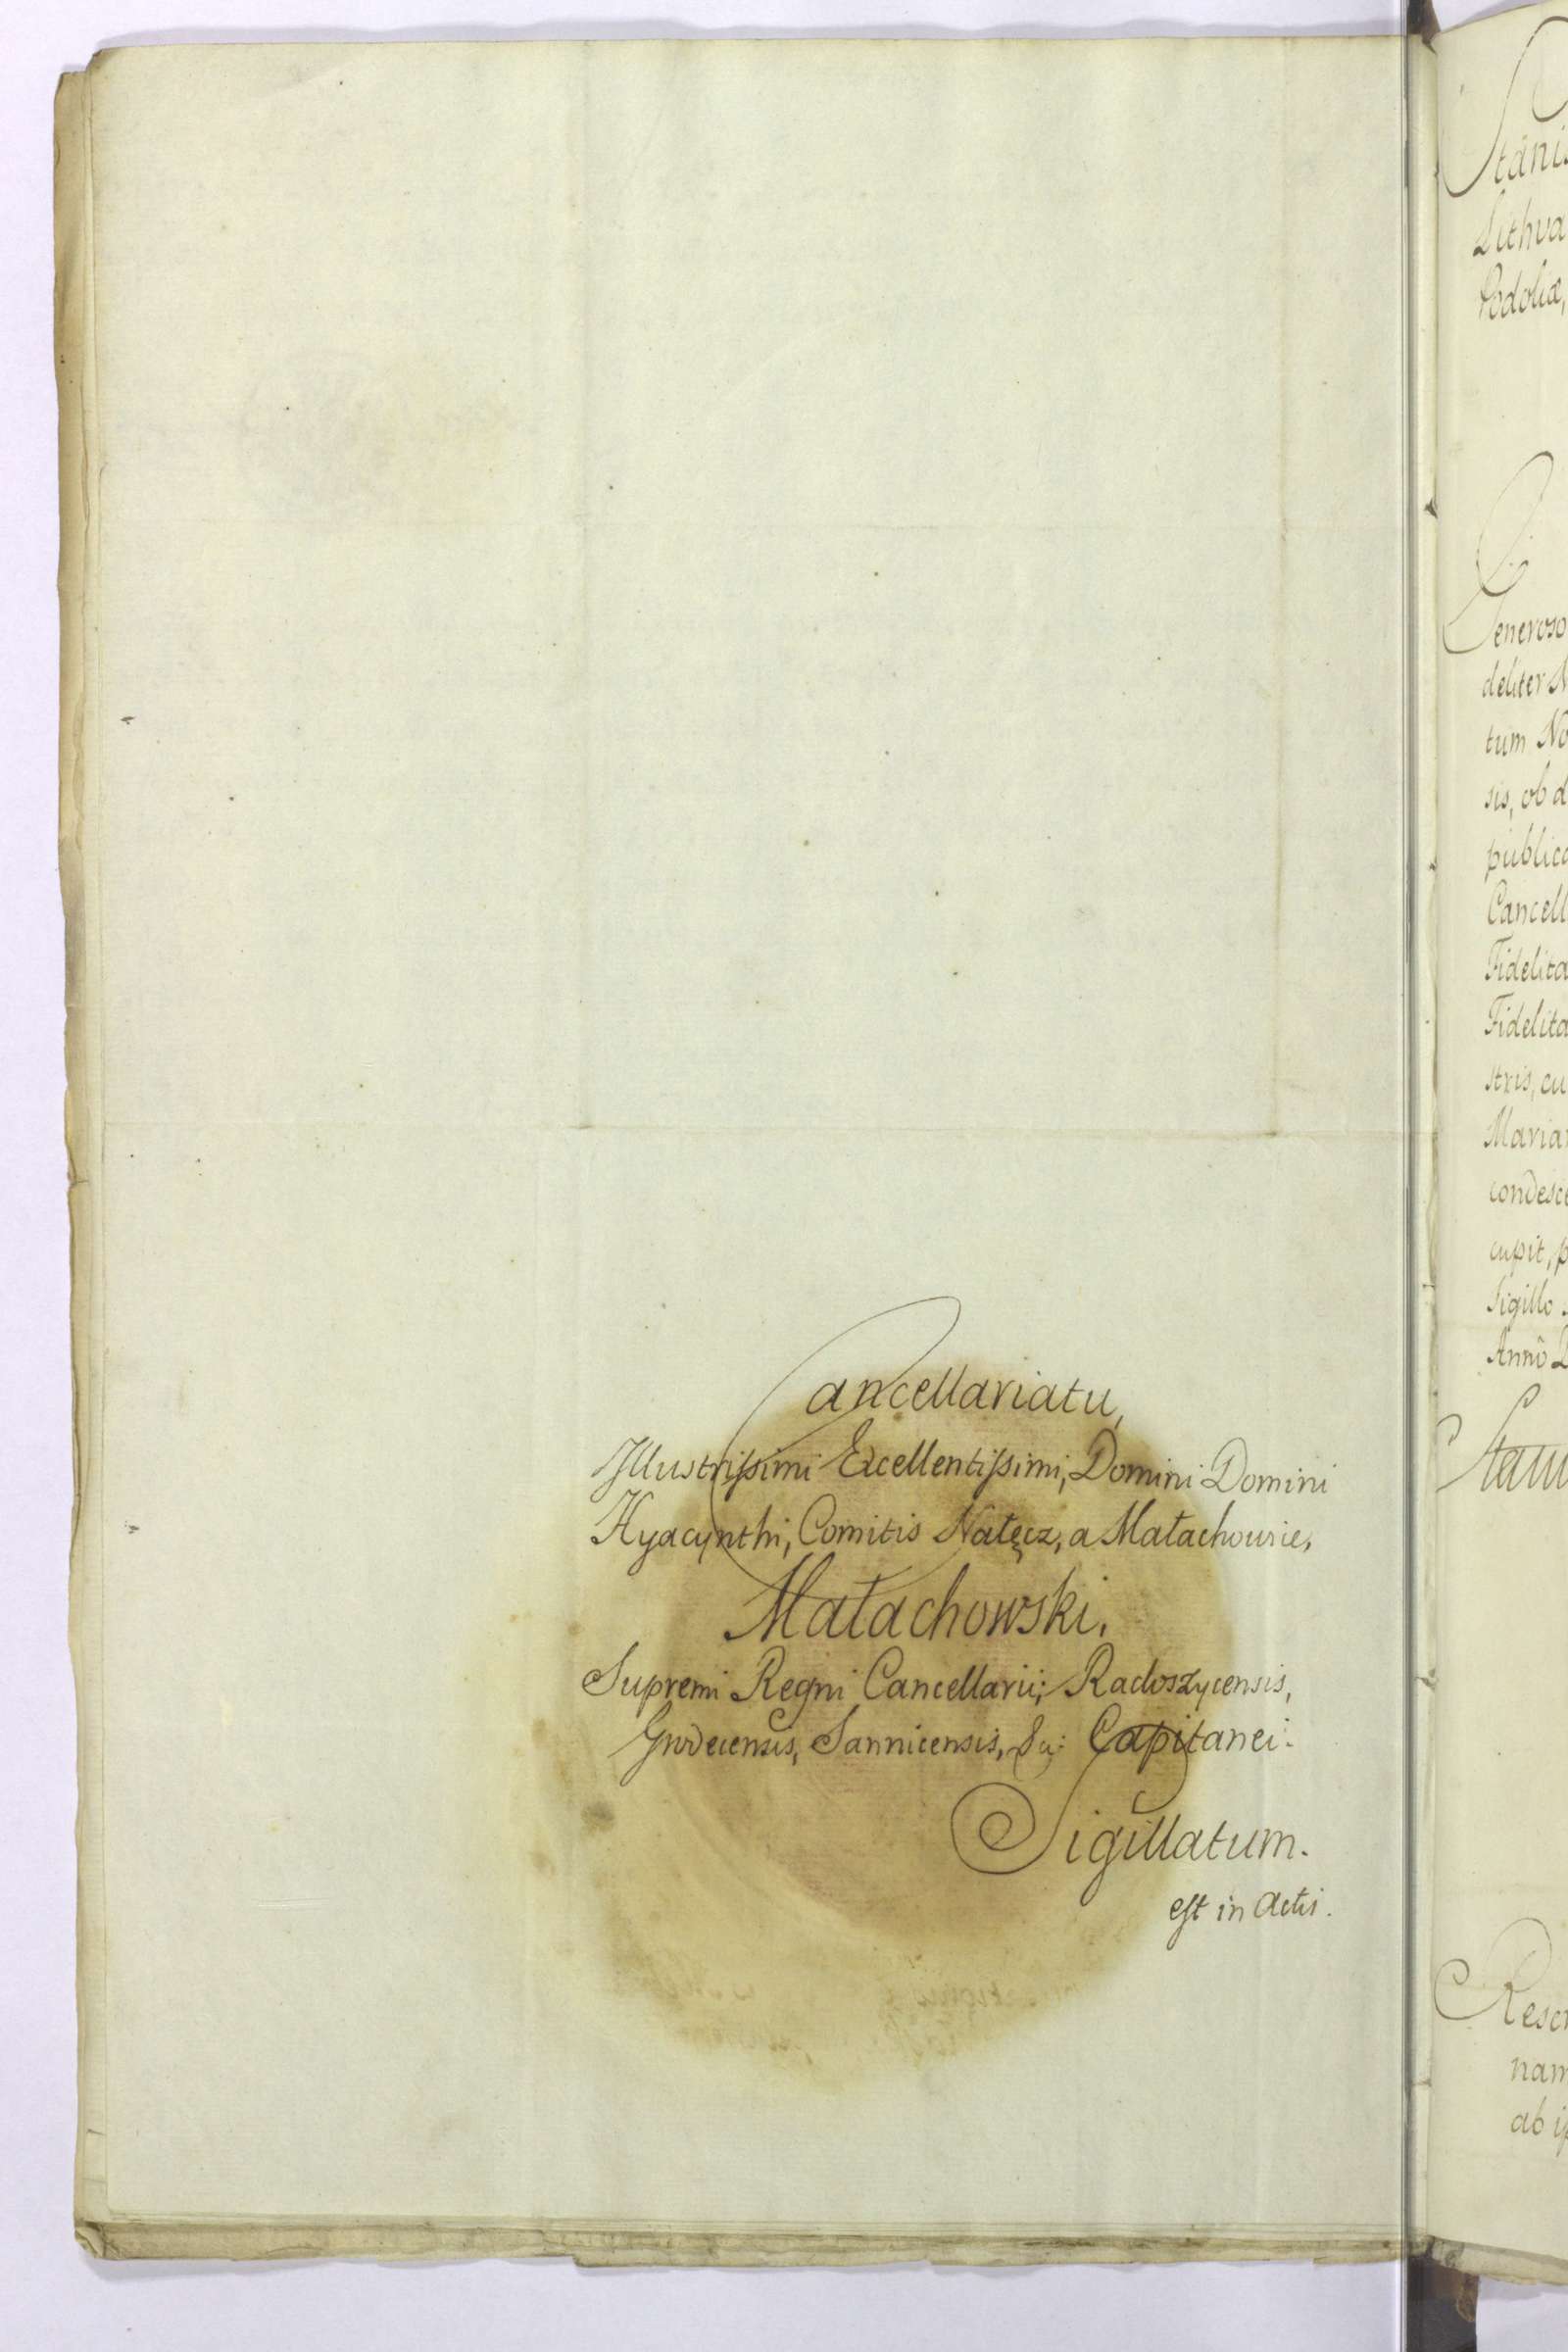 Cancellariatu,
Illustrissimi Excellentissimi, Domini Domini
Hyacynthi, Comitis Nałęcz, a Małachowice,
Małachowski,
Supremi Regni Cancellarii; Radoszycensis,
Grodecensis, Sannicensis, &c: Capitanei.
Sigillatum.
est in Actis.
Stanis
Lithua
Podoliæ,
Generoso
deliter N
tum No
sis, ob d
publica
Cancell
Fidelita
Fidelita
stris, cu
Maria
condesce
cupit, p
Sigillo
Annô D
Resc
nam
ab ip